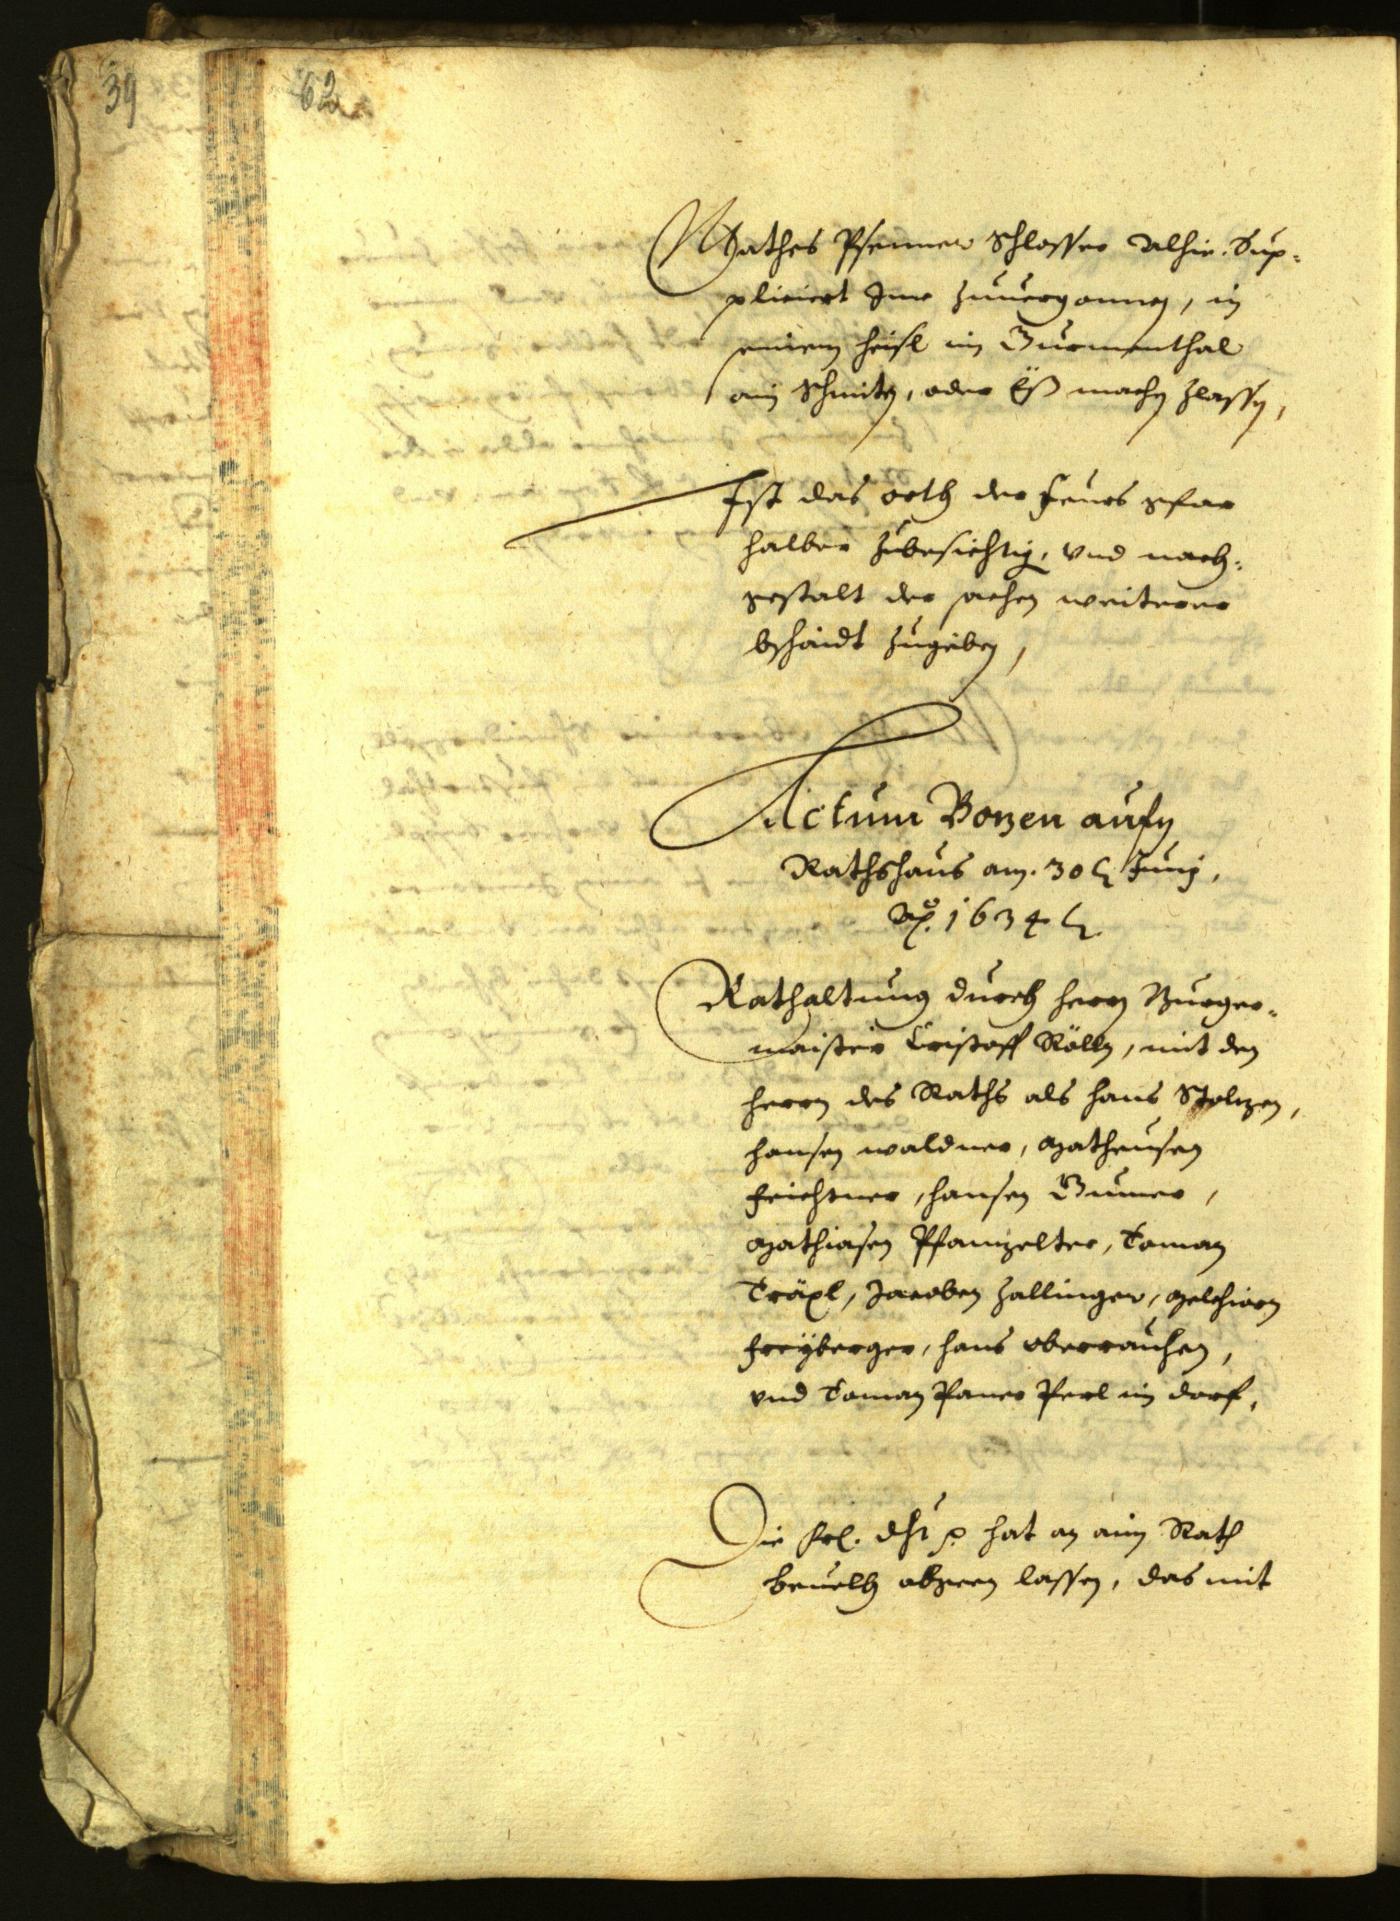 39
62
Mathes Pfenner Schlosser Alhie Sup-
pliciert Ime zuuergonnen, in
seinem heisl im Gurmenthal
ain Schmiten, oder Eß machen zlassen,
Ist das orth der Feurs gfar
halber zubesichtigen, vnd nach-
gestalt der sachen weiterer
bschaidt zugeben,
Actum Bozen aufm
Rathshaus am. 30 Juny,
Ao. 1634
Rathaltung durch herrn Burger-
maister Cristoff Rölln, mit den
herrn des Raths als hans Stolzen,
hansen waldner, Matheusen
Feichtner, hansen Gumer,
Mathiasen Pfanzelter, Toman
Träxl, Jacoben Zallinger, Melchiorn
Freyberger, hans oberrauchen,
vnd Toman Paner Perl im dorf,
Die Frl. Dht. hat an ain Rath
beuelch abgeen lassen, das mit